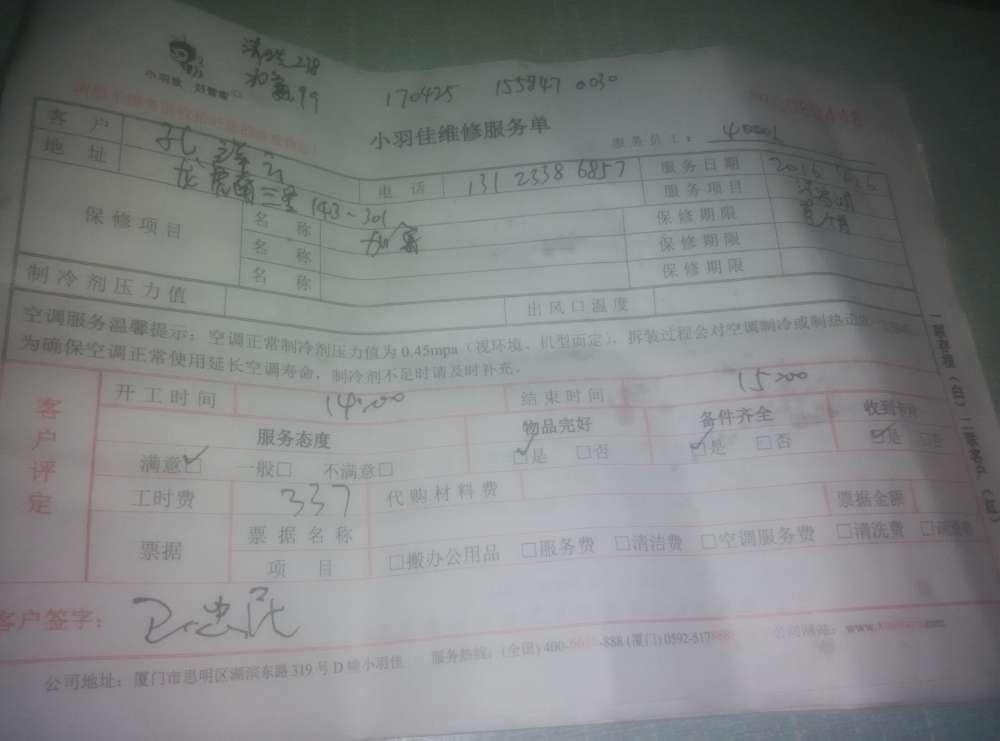 小羽佳 好管家
170425 155847 0030
小羽佳维修服务单
服务员工：
客户 电话 131 2338 6857 服务日期
地址 龙虎南三里 143-301 服务项目
保修项目 名称 加氟 保修期限
名称 保修期限
名称 保修期限
制冷剂压力值 出风口温度
空调服务温馨提示：空调正常制冷剂压力值为 0.45mpa（视环境、机型而定），拆装过程会对空调制冷或制热
为确保空调正常使用延长空调寿命，制冷剂不足时请及时补充.
客户评定
开工时间 14:00 结束时间 15:00
服务态度 物品完好 备件齐全 收到卡
满意☑ 一般□ 不满意□ ☑是 □否 ☑是 □否 ☑是 □否
工时费 337 代购材料费 票据金额
票据 票据名称
项目 □搬办公用品 □服务费 □清洁费 □空调服务费 □清洗费
客户签字：
公司地址：厦门市思明区湖滨东路 319 号 D 幢小羽佳 服务热线：(全国) 400- -888 (厦门) 0592-517 公司网站：www.
一联存根（白） 二联客户（红）